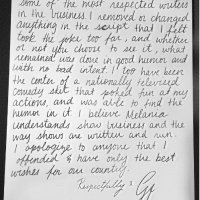 some of the most respected writers
in the business. I removed or changed
anything in the script that I felt
took the joke too far, and whether
or not you choose to see it, what
remained was done in good humor and
with no bad intent. I too have been
the center of a nationally televised
comedy skit that poked fun at my
actions, and was able to find the
humor in it. I believe Melania
understands show business and the
way shows are written and run.
I apologize to anyone that I
offended & have only the best
wishes for our country.
Respectfully,